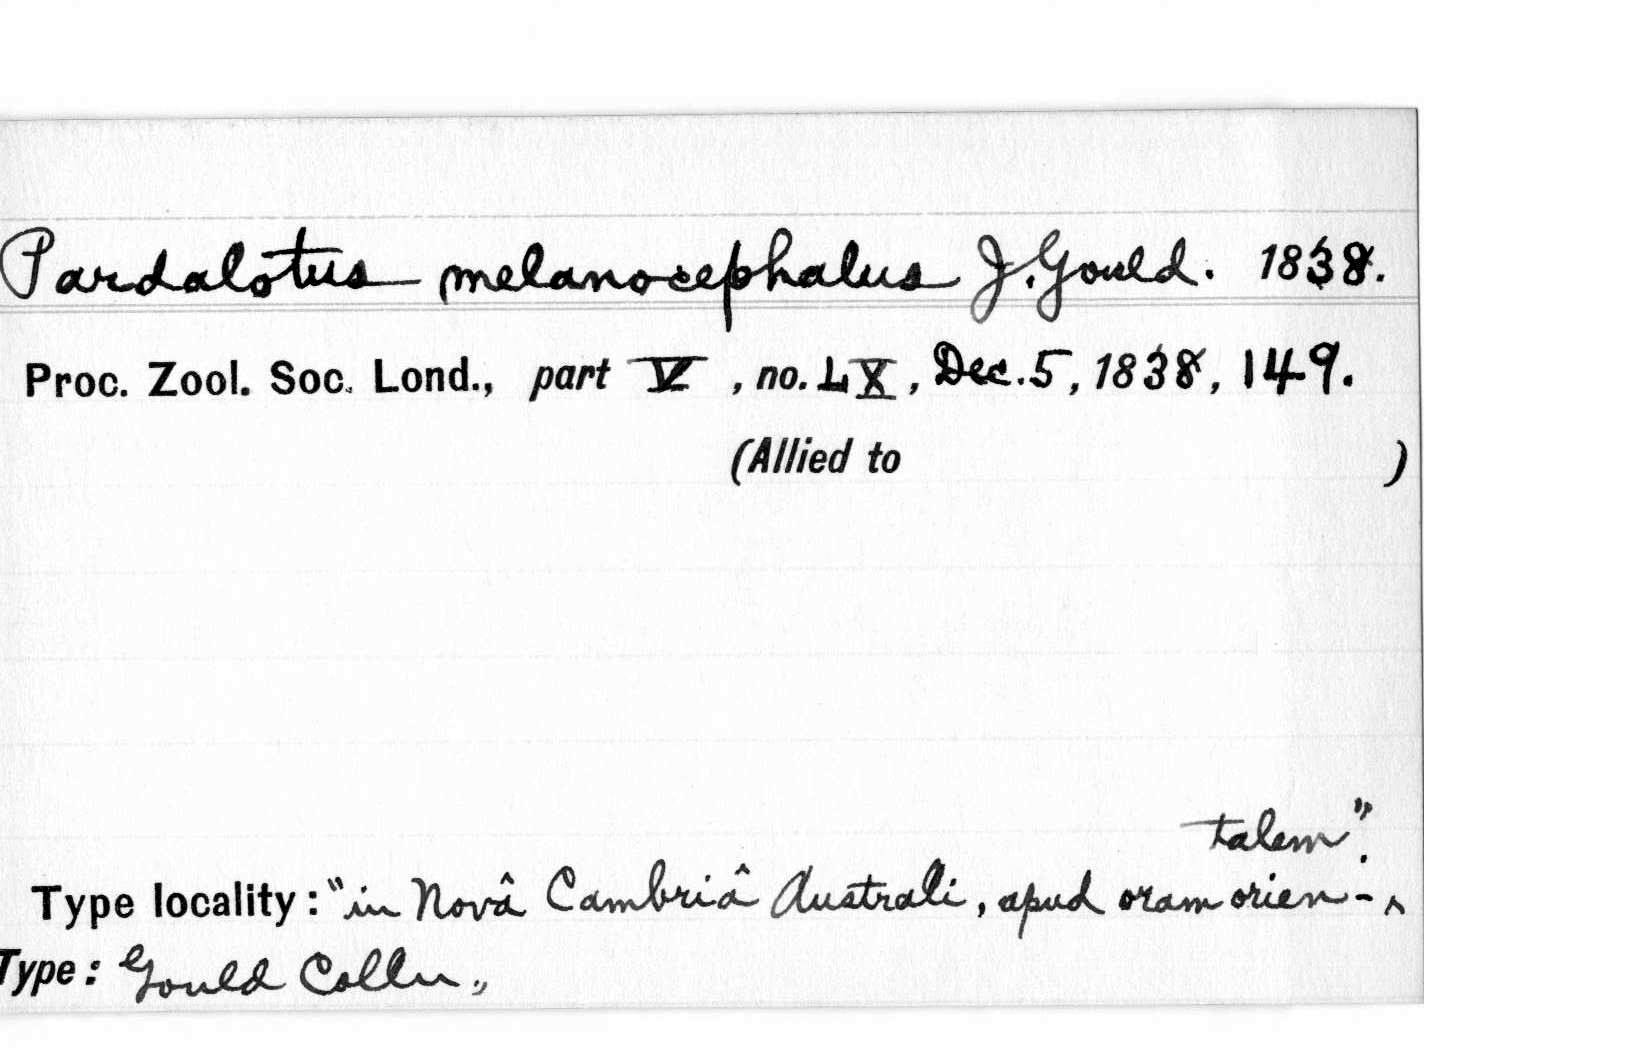 Pardalotus melanocephalus J. Gould. 1838.
Proc. Zool. Soc. Lond., part V, no. LX, Dec. 5, 1838, 149.
(Allied to )
talem".
Type locality: "in Novâ Cambriâ Australi, apud oram orien- ^
Type: Gould Colln.,